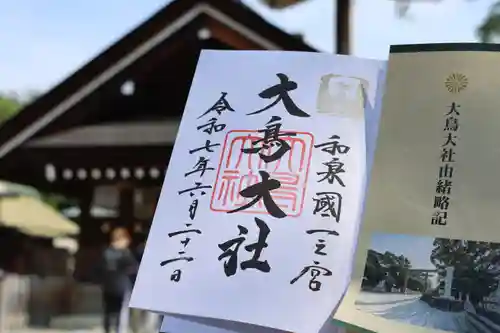 和泉國一之宮
大鳥大社
令和七年六月二十二日
大鳥大社由緒略記